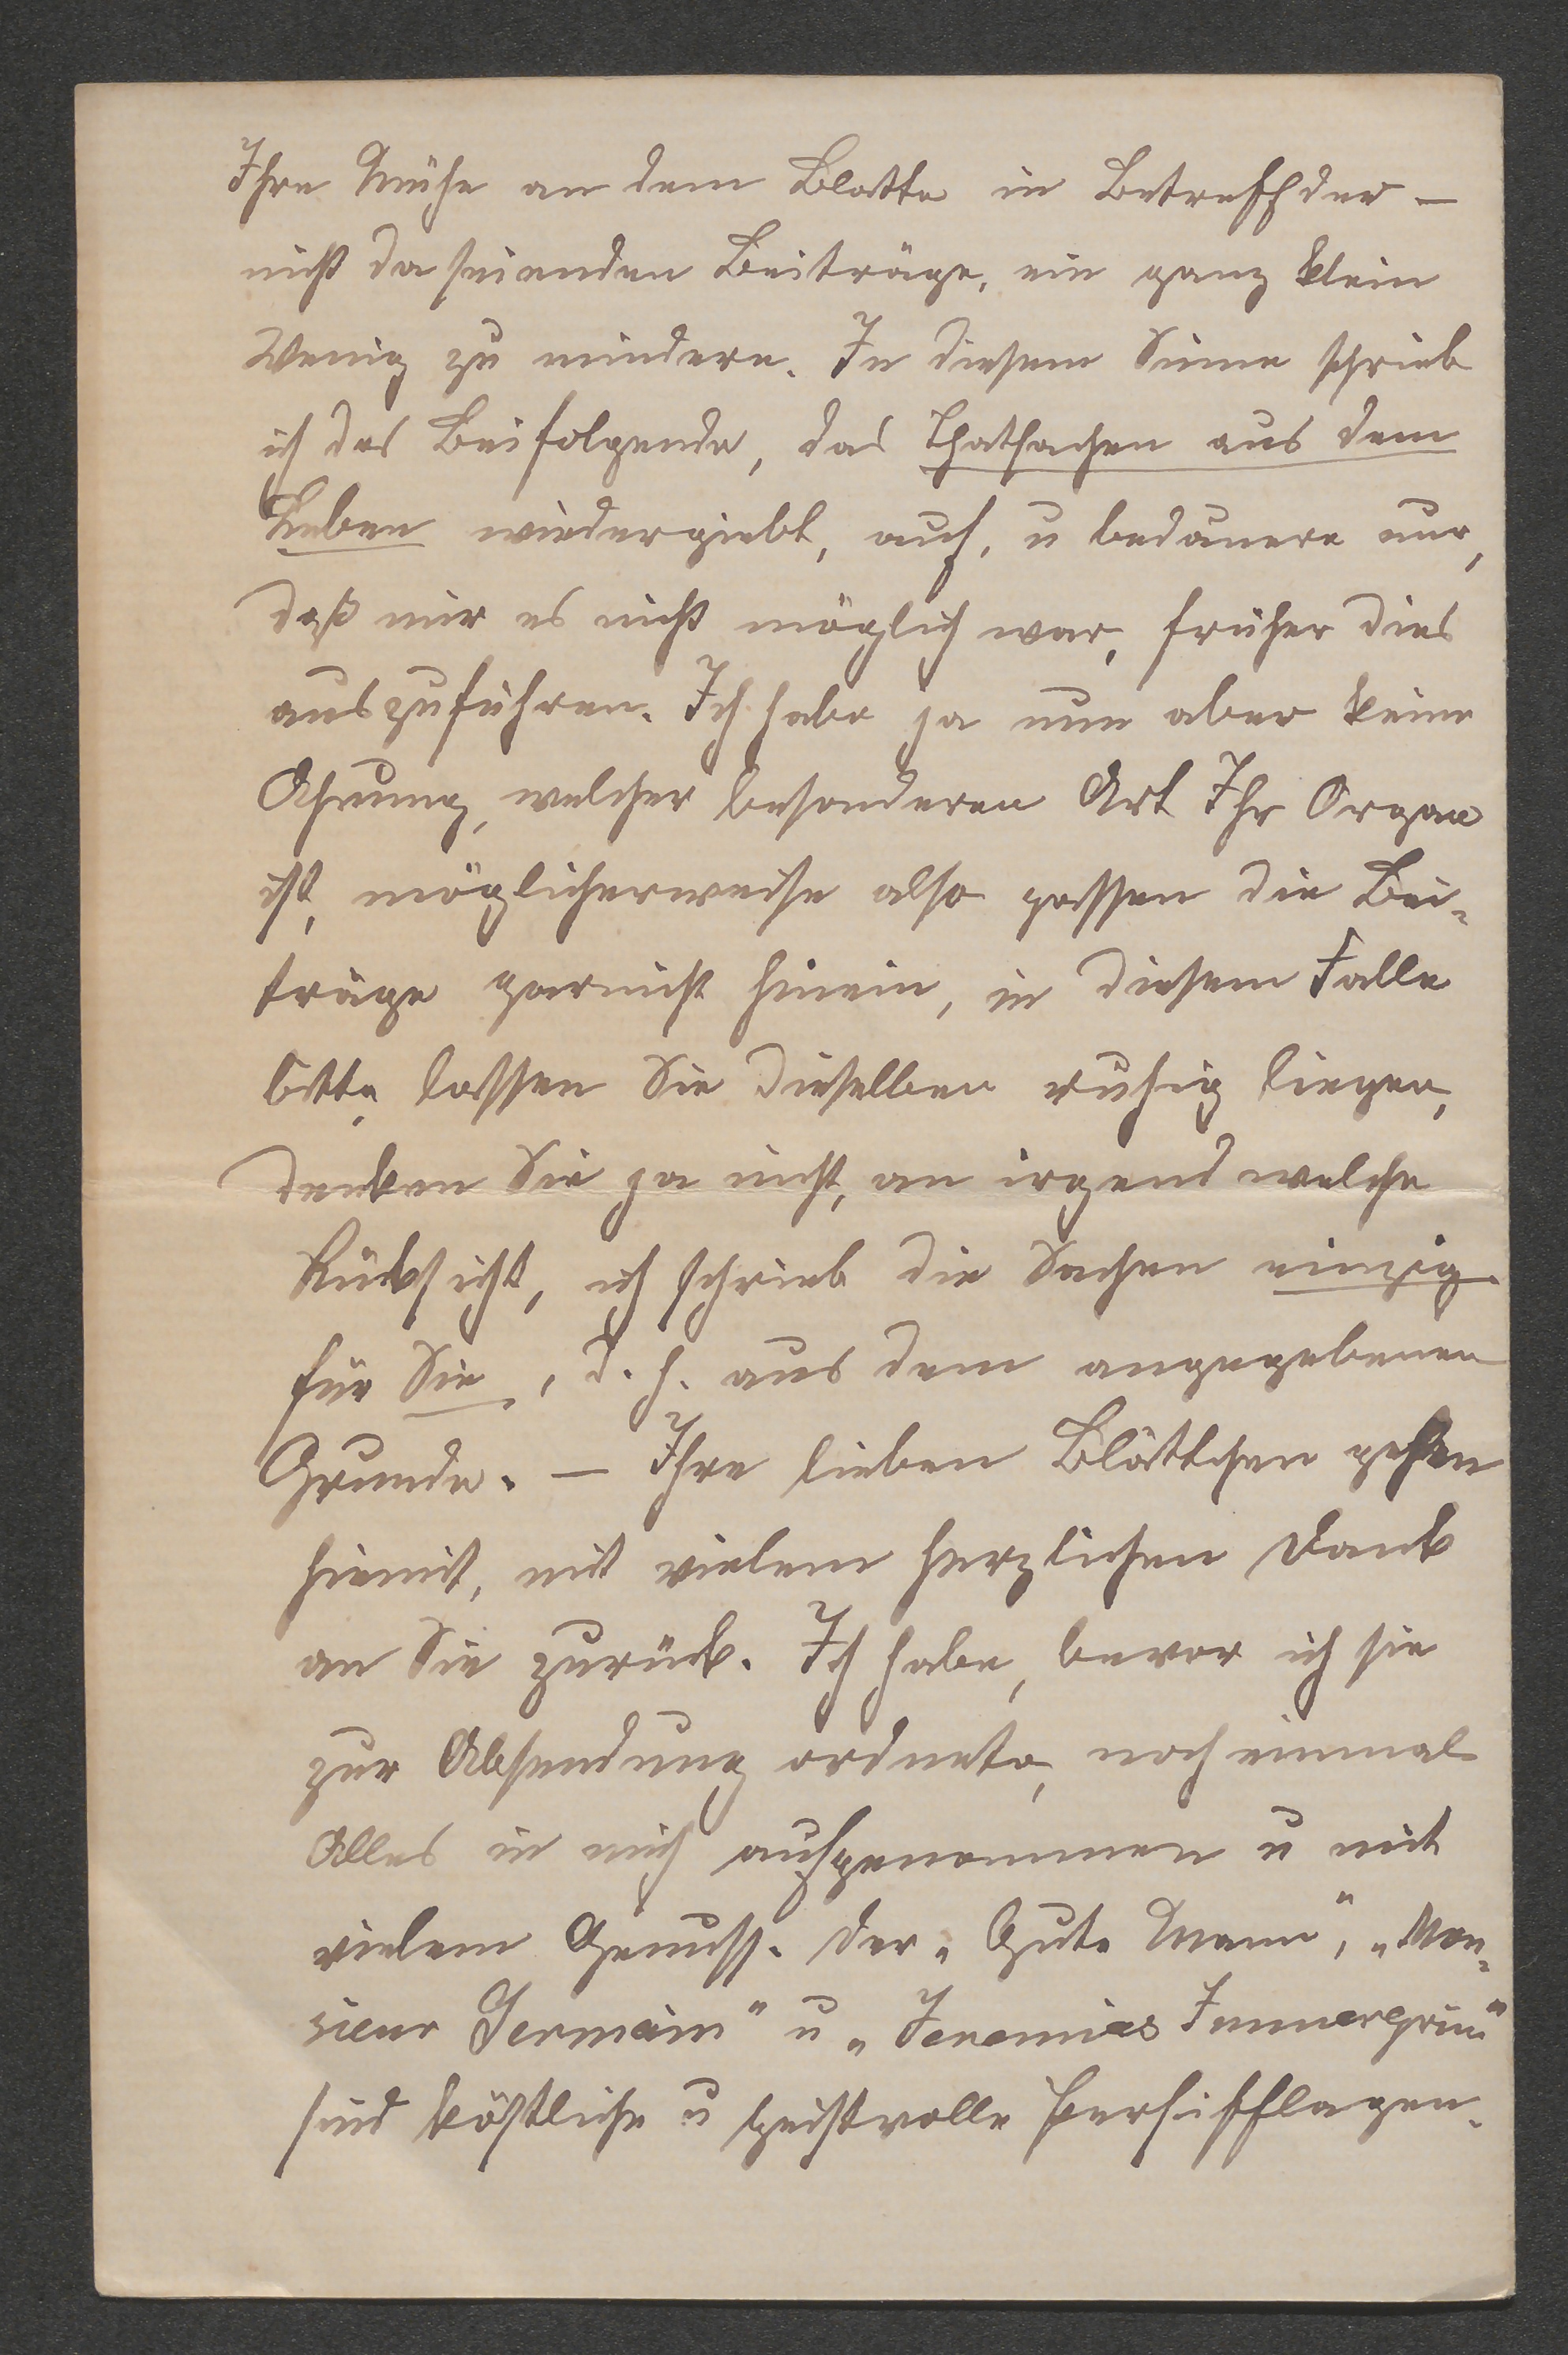 Ihre Mühe an dem Blatte in Betreff der –
nicht da seienden Beiträge, ein ganz klein
Wenig zu mindern. In diesem Sinne schrieb
ich das Beifolgende, das Thatsachen aus dem
Leben wiedergiebt, auch, u bedauere nur,
daß mir es nicht möglich war, früher dies
auszuführen. Ich habe ja nun aber keine
Ahnung, welcher besonderen Art Ihr Organ
ist, möglicherweise also passen die Bei-
träge garnicht hinein, in diesem Falle
bitte lassen Sie dieselben ruhig liegen,
denken Sie ja nicht, an irgend welche
Rücksicht, ich schrieb die Sachen einzig
für Sie, d. h. aus dem angegebenen
Grunde. – Ihre lieben Blättchen gehen
hiemit, mit vielem herzlichen Dank
an Sie zurück. Ich habe, bevor ich sie
zur Absendung ordnete, noch einmal
Alles in mich aufgenommen u mit
vielem Genuss. Der „Gute Mann", „Mon-
sieur Germain" u „Jeremias Immergrün"
sind köstliche u geistvolle Persifflagen.